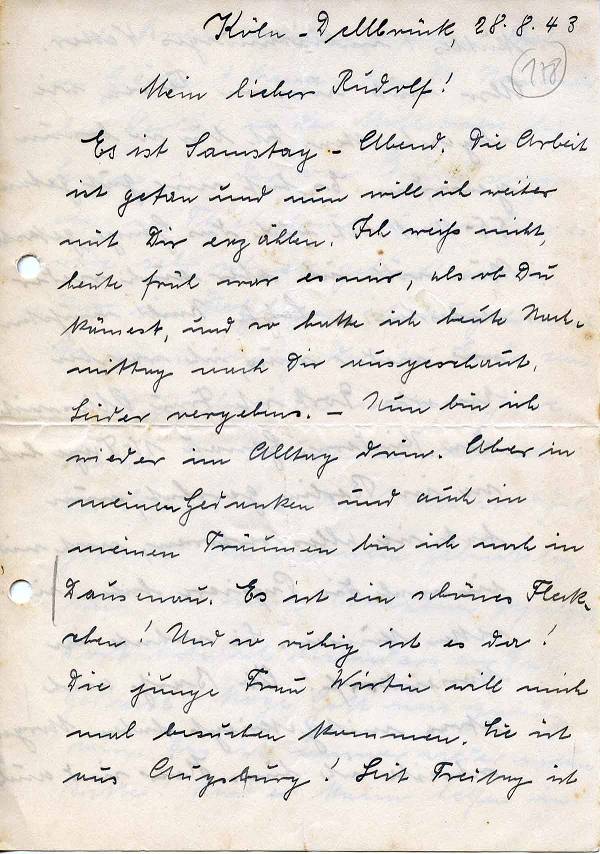 Köln-Dellbrück, 28.8.43
178
Mein lieber Rudolf!
Es ist Samstag-Abend. Die Arbeit
ist getan und nun will ich weiter
mit Dir erzählen. Ich weiß nicht,
heute früh war es mir, als ob Du
kämest, und so hatte ich heute Nach-
mittag nach Dir ausgeschaut.
Leider vergebens. – Nun bin ich
wieder im Alltag drin. Aber in
meinen Gedanken und auch in
meinen Träumen bin ich noch in
Dausenau. Es ist ein schönes Fleck-
chen! Und so ruhig ist es da!
Die junge Frau Wirtin will mich
mal besuchen kommen. Sie ist
aus Augsburg! Seit Freitag ist